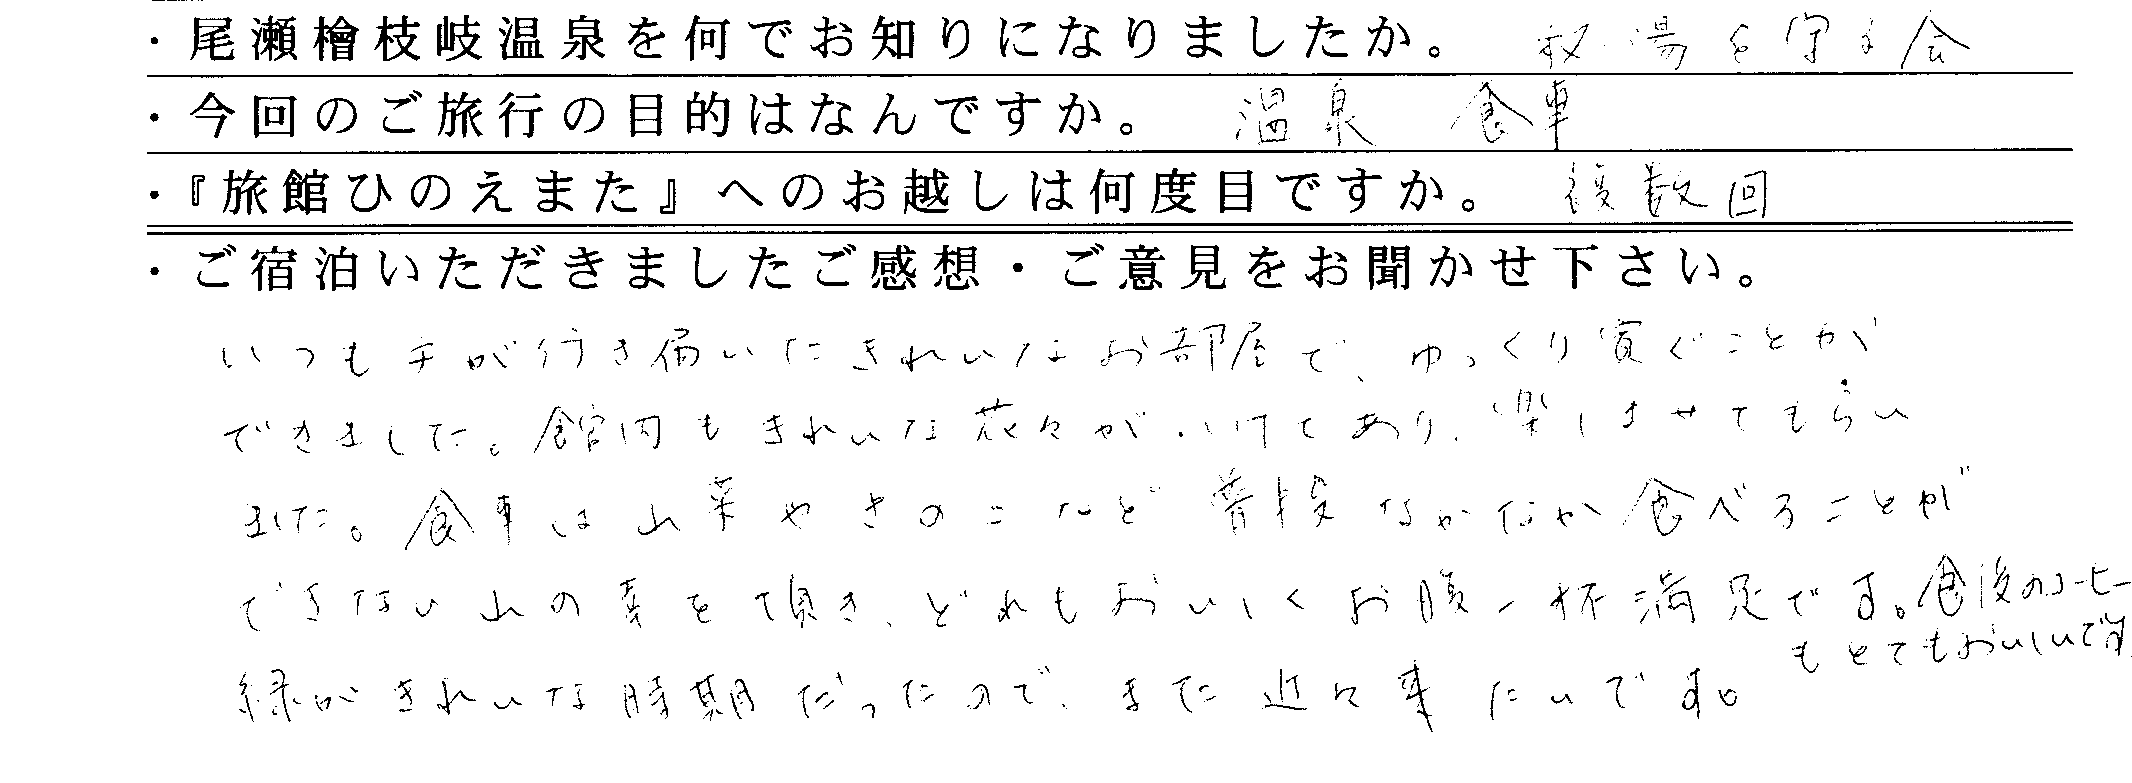 ・尾瀬檜枝岐温泉を何でお知りになりましたか。 秘湯を守る会
・今回のご旅行の目的はなんですか。 温泉 食事
・『旅館ひのえまた』へのお越しは何度目ですか。 複数回
・ご宿泊いただきましたご感想・ご意見をお聞かせ下さい。
いつも手が行き届いたきれいなお部屋で、ゆっくり寛ぐことが
できました。館内もきれいな花々がいけてあり、楽しませてもらい
ました。食事は山菜やきのこなど普段なかなか食べることが
できない山の幸を頂き、どれもおいしくお腹一杯満足です。食後のコーヒー
もとてもおいしいです。
緑がきれいな時期だったので、また近々来たいです。